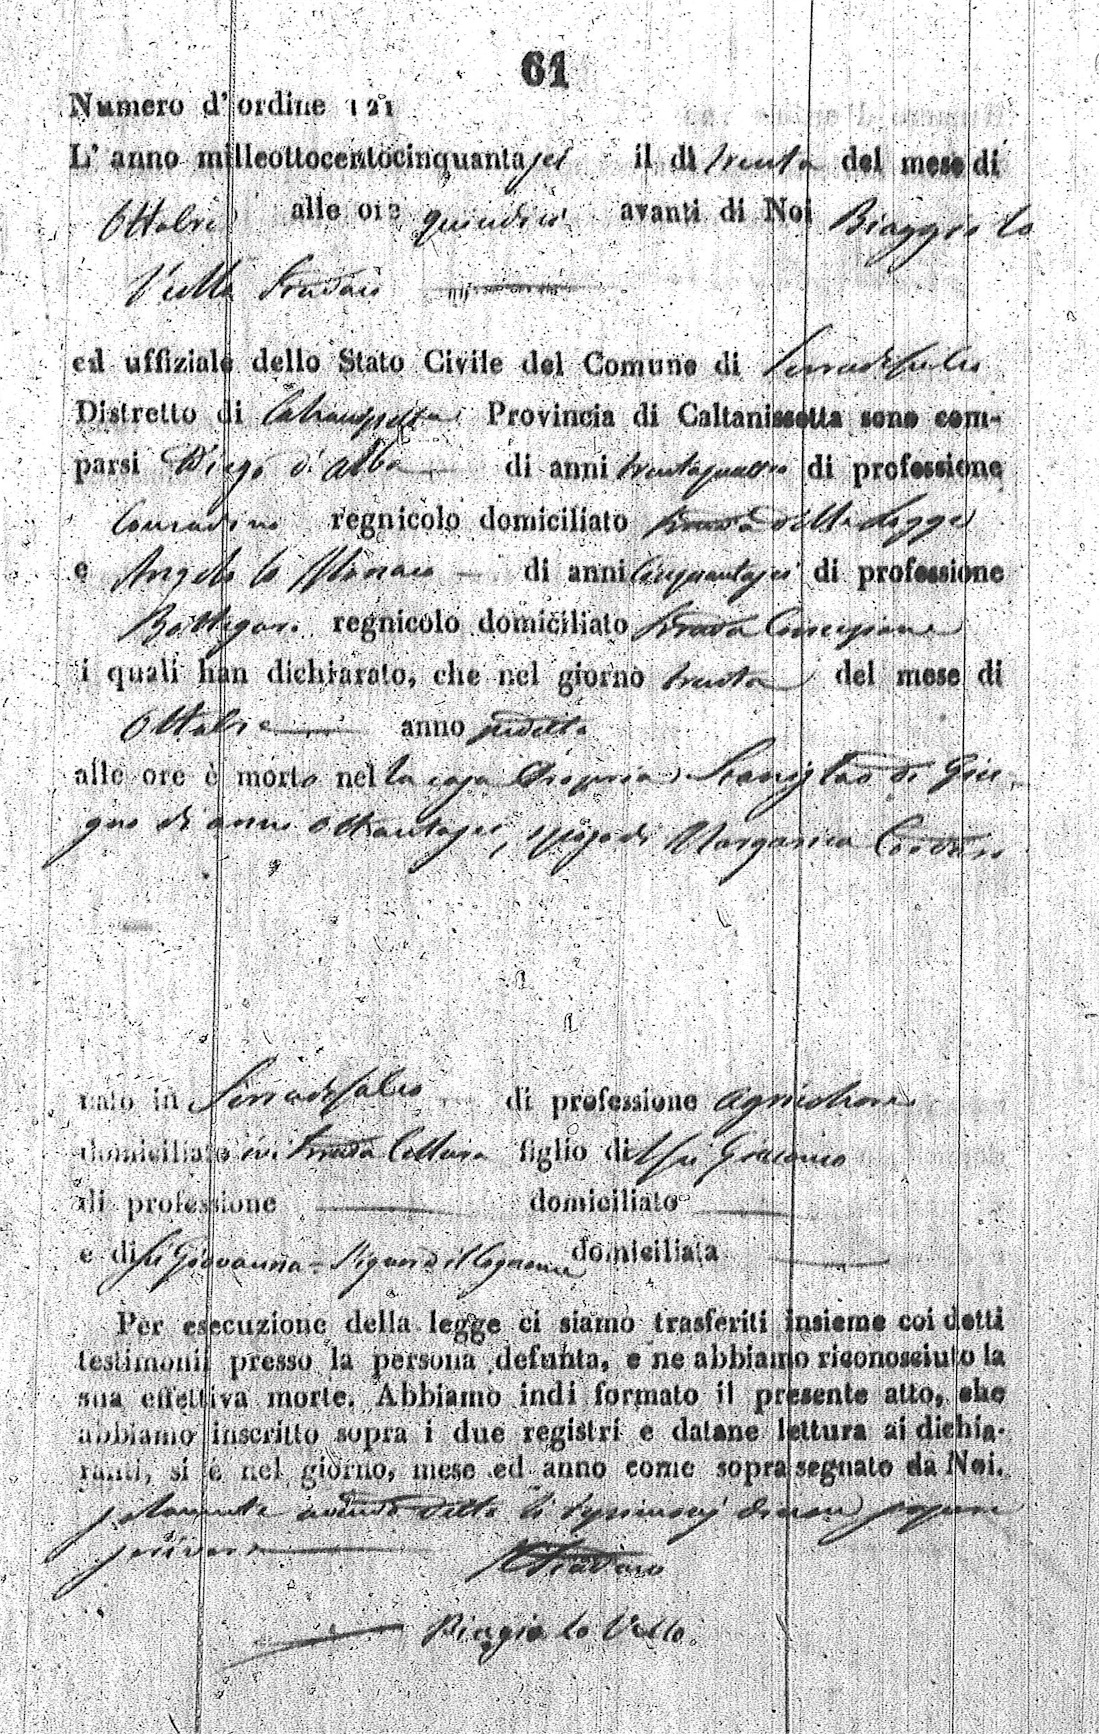 61
Numero d'ordine 121
L'anno milleottocentocinquantasei il di trenta del mese di
Ottobre alle ore quindici avanti di Noi Biaggio lo
Vello Sindaco
ed uffiziale dello Stato Civile del Comune di Serradifalco
Distretto di Caltanissetta Provincia di Caltanissetta sono com-
parsi Diego d'Alba di anni trentaquattro di professione
Contadino regnicolo domiciliato Strada delle Logge
e Angelo lo Monaco di anni cinquantasei di professione
Bottegaro regnicolo domiciliato Strada Concezione
i quali han dichiarato, che nel giorno trenta del mese di
Ottobre anno sudetto
alle ore è morto nella casa propria di
di anni ottantasei, sposo di Margarita
nato in Serradifalco di professione agricoltore
domiciliato ivi Strada figlio di fu Giacomo
di professione domiciliato
e di fu Giovanna s'ignora il cognome domiciliata
Per esecuzione della legge ci siamo trasferiti insieme coi detti
testimonii presso la persona defunta, e ne abbiamo riconosciuto la
sua effettiva morte. Abbiamo indi formato il presente atto, che
abbiamo inscritto sopra i due registri e datane lettura ai dichia-
ranti, si è nel giorno, mese ed anno come sopra segnato da Noi.
solamente avendo detto li testimonj di non sapere
scrivere
Il Sindaco
Biagio lo Vello